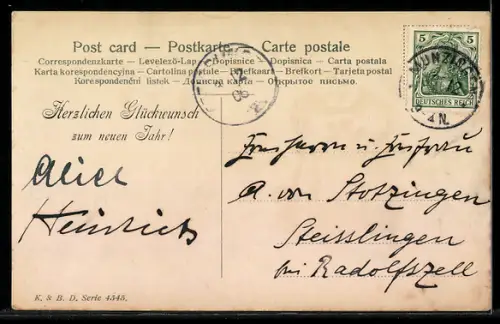 Post card — Postkarte — Carte postale
Correspondenzkarte — Levelező-Lap — Dopisnice — Dopisnica — Carta postala
Karta korespondencyjna — Cartolina postale — Brefkaart — Brefkort — Tarjeta postal
Korespondenční listek — Дописна карта — Открытое письмо.
Herzlichen Glückwunsch
zum neuen Jahr!
Alice
Heinrich
K. & B. D. Serie 4545.
5 5
DEUTSCHES REICH
Freiherrn u. Freifrau
A. von Stotzingen
Steisslingen
bei Radolfszell